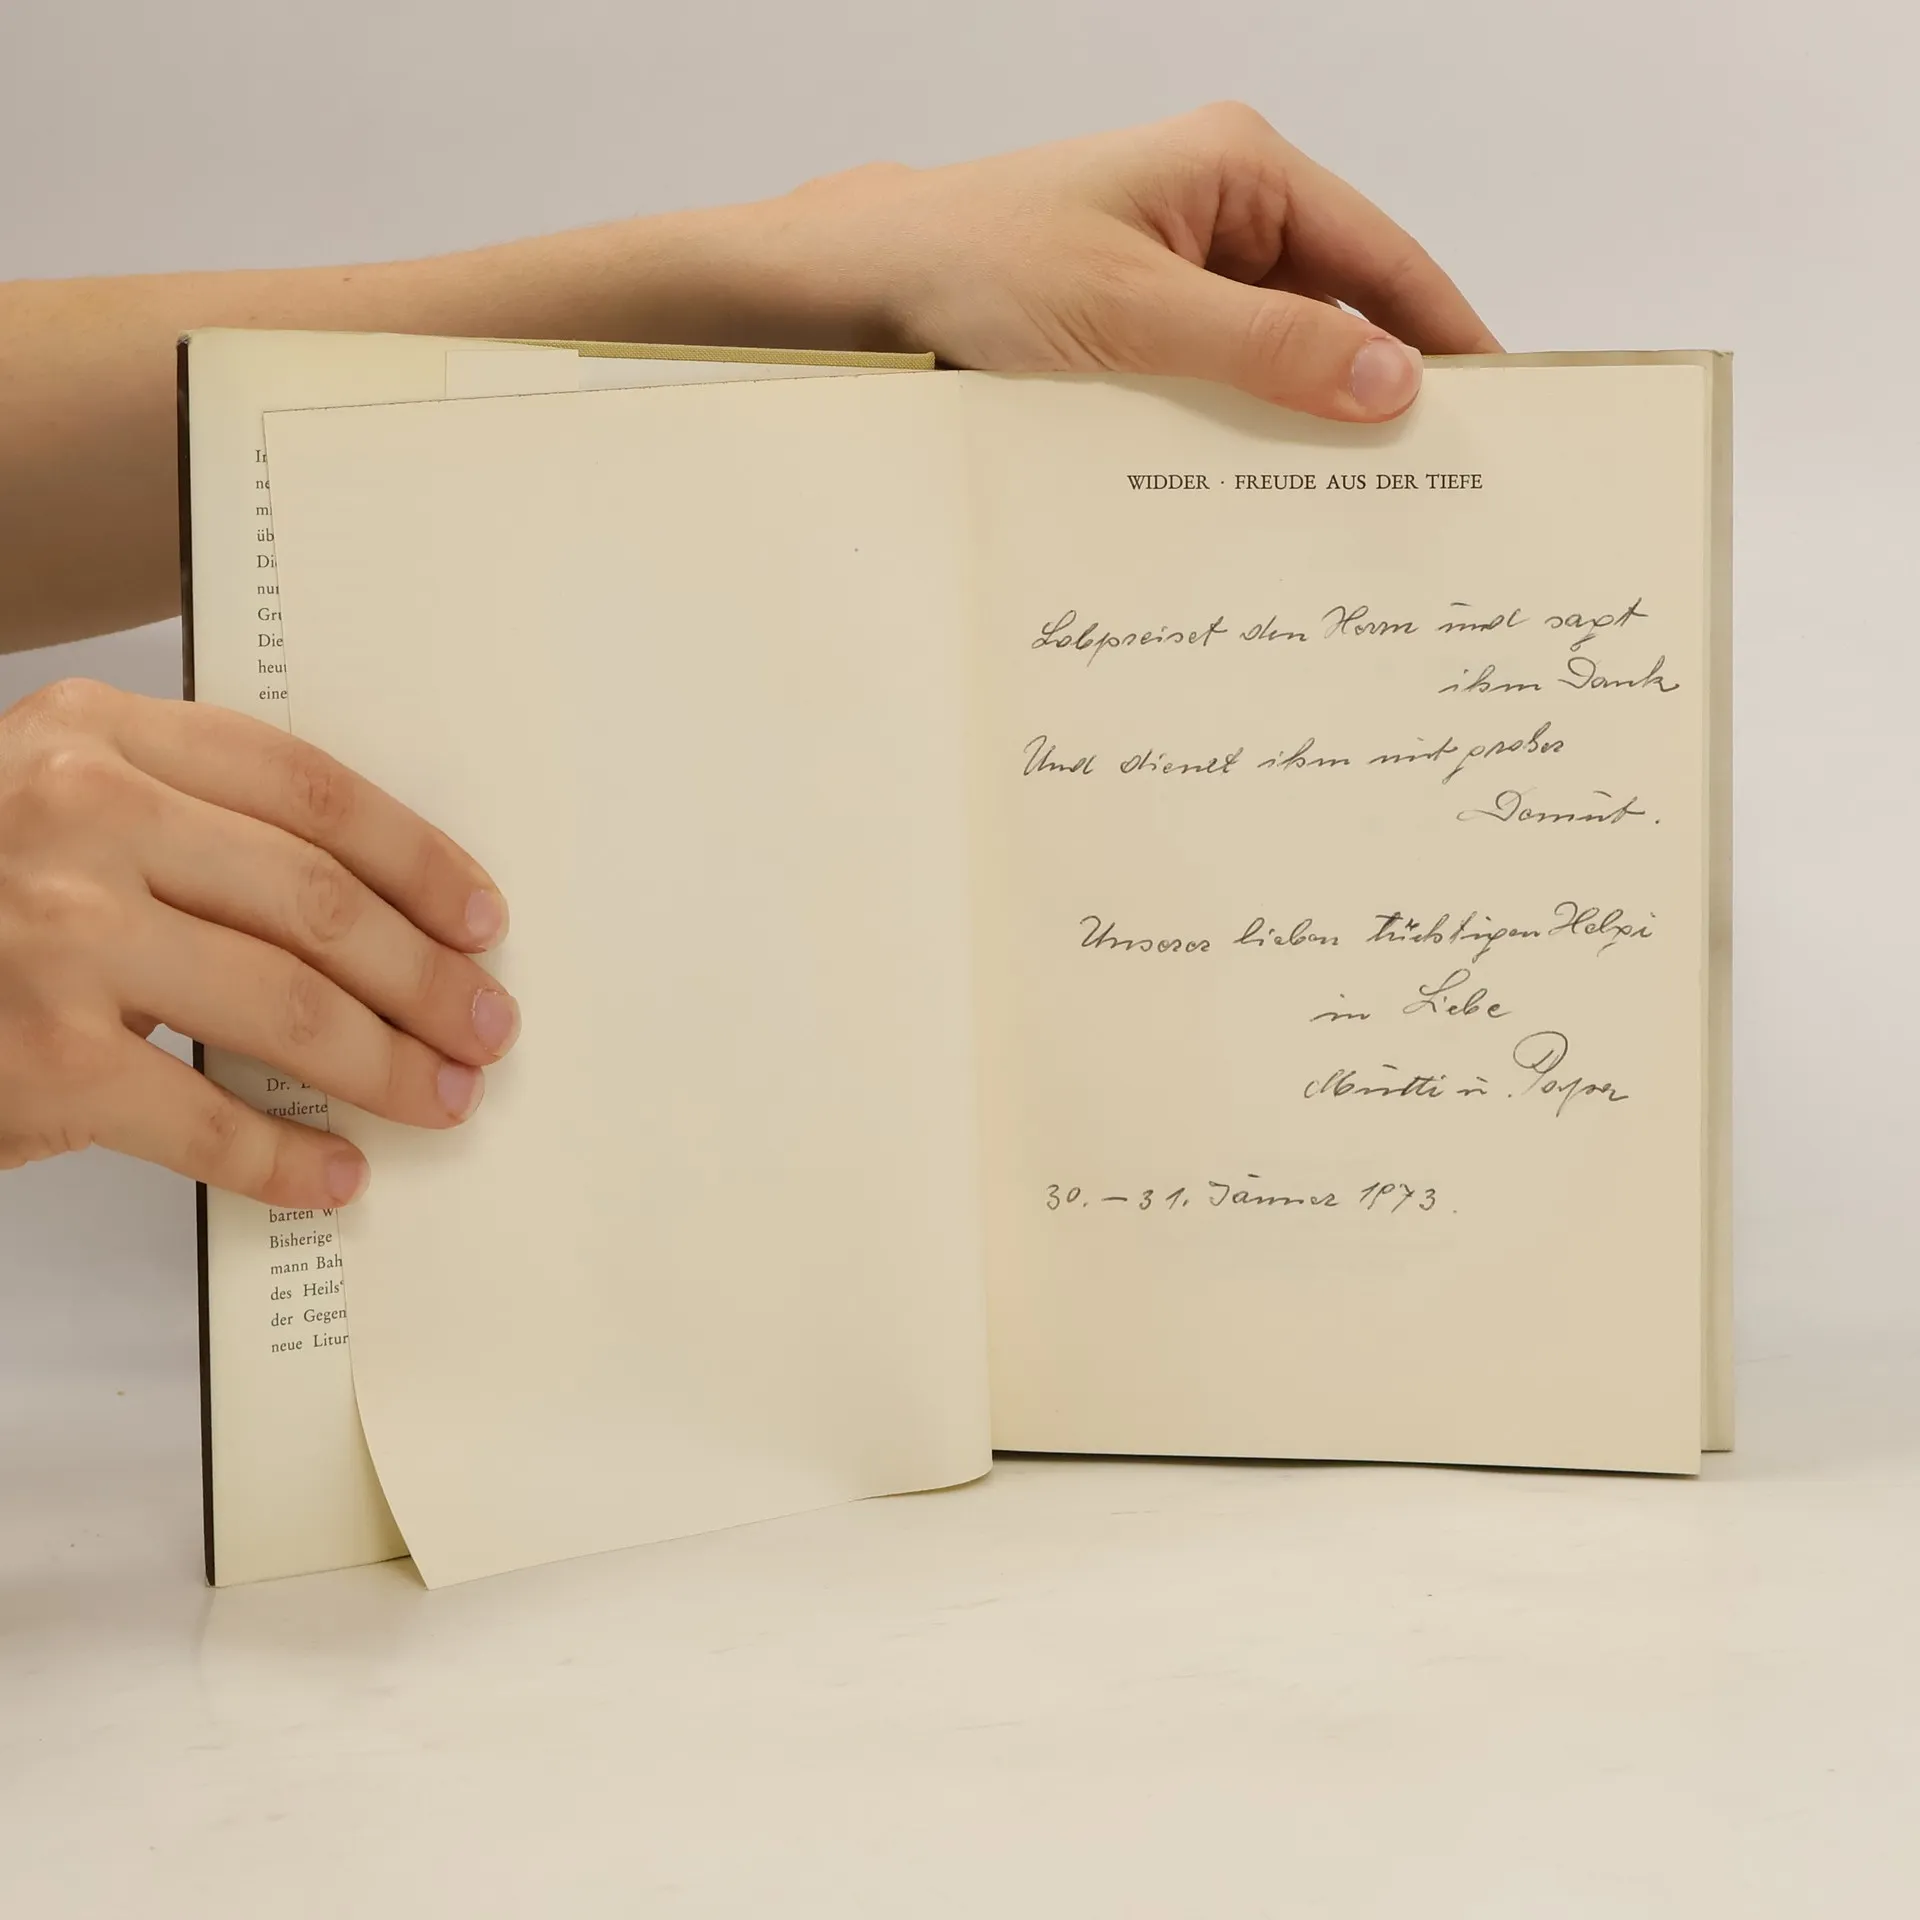 In
ne
mi
üb
Die
nur
Gru
Die
heut
eine
Dr.
studierte
barten w
Bisherige
mann Bah
des Heils“
der Gegen
neue Litur
WIDDER · FREUDE AUS DER TIEFE
Lobpreiset den Herrn und sagt
ihm Dank
Und dienet ihm mit großer
Demut.
Unserer lieben tüchtigen Helgi
in Liebe
Mutti u.
30. – 31. Jänner 1973.